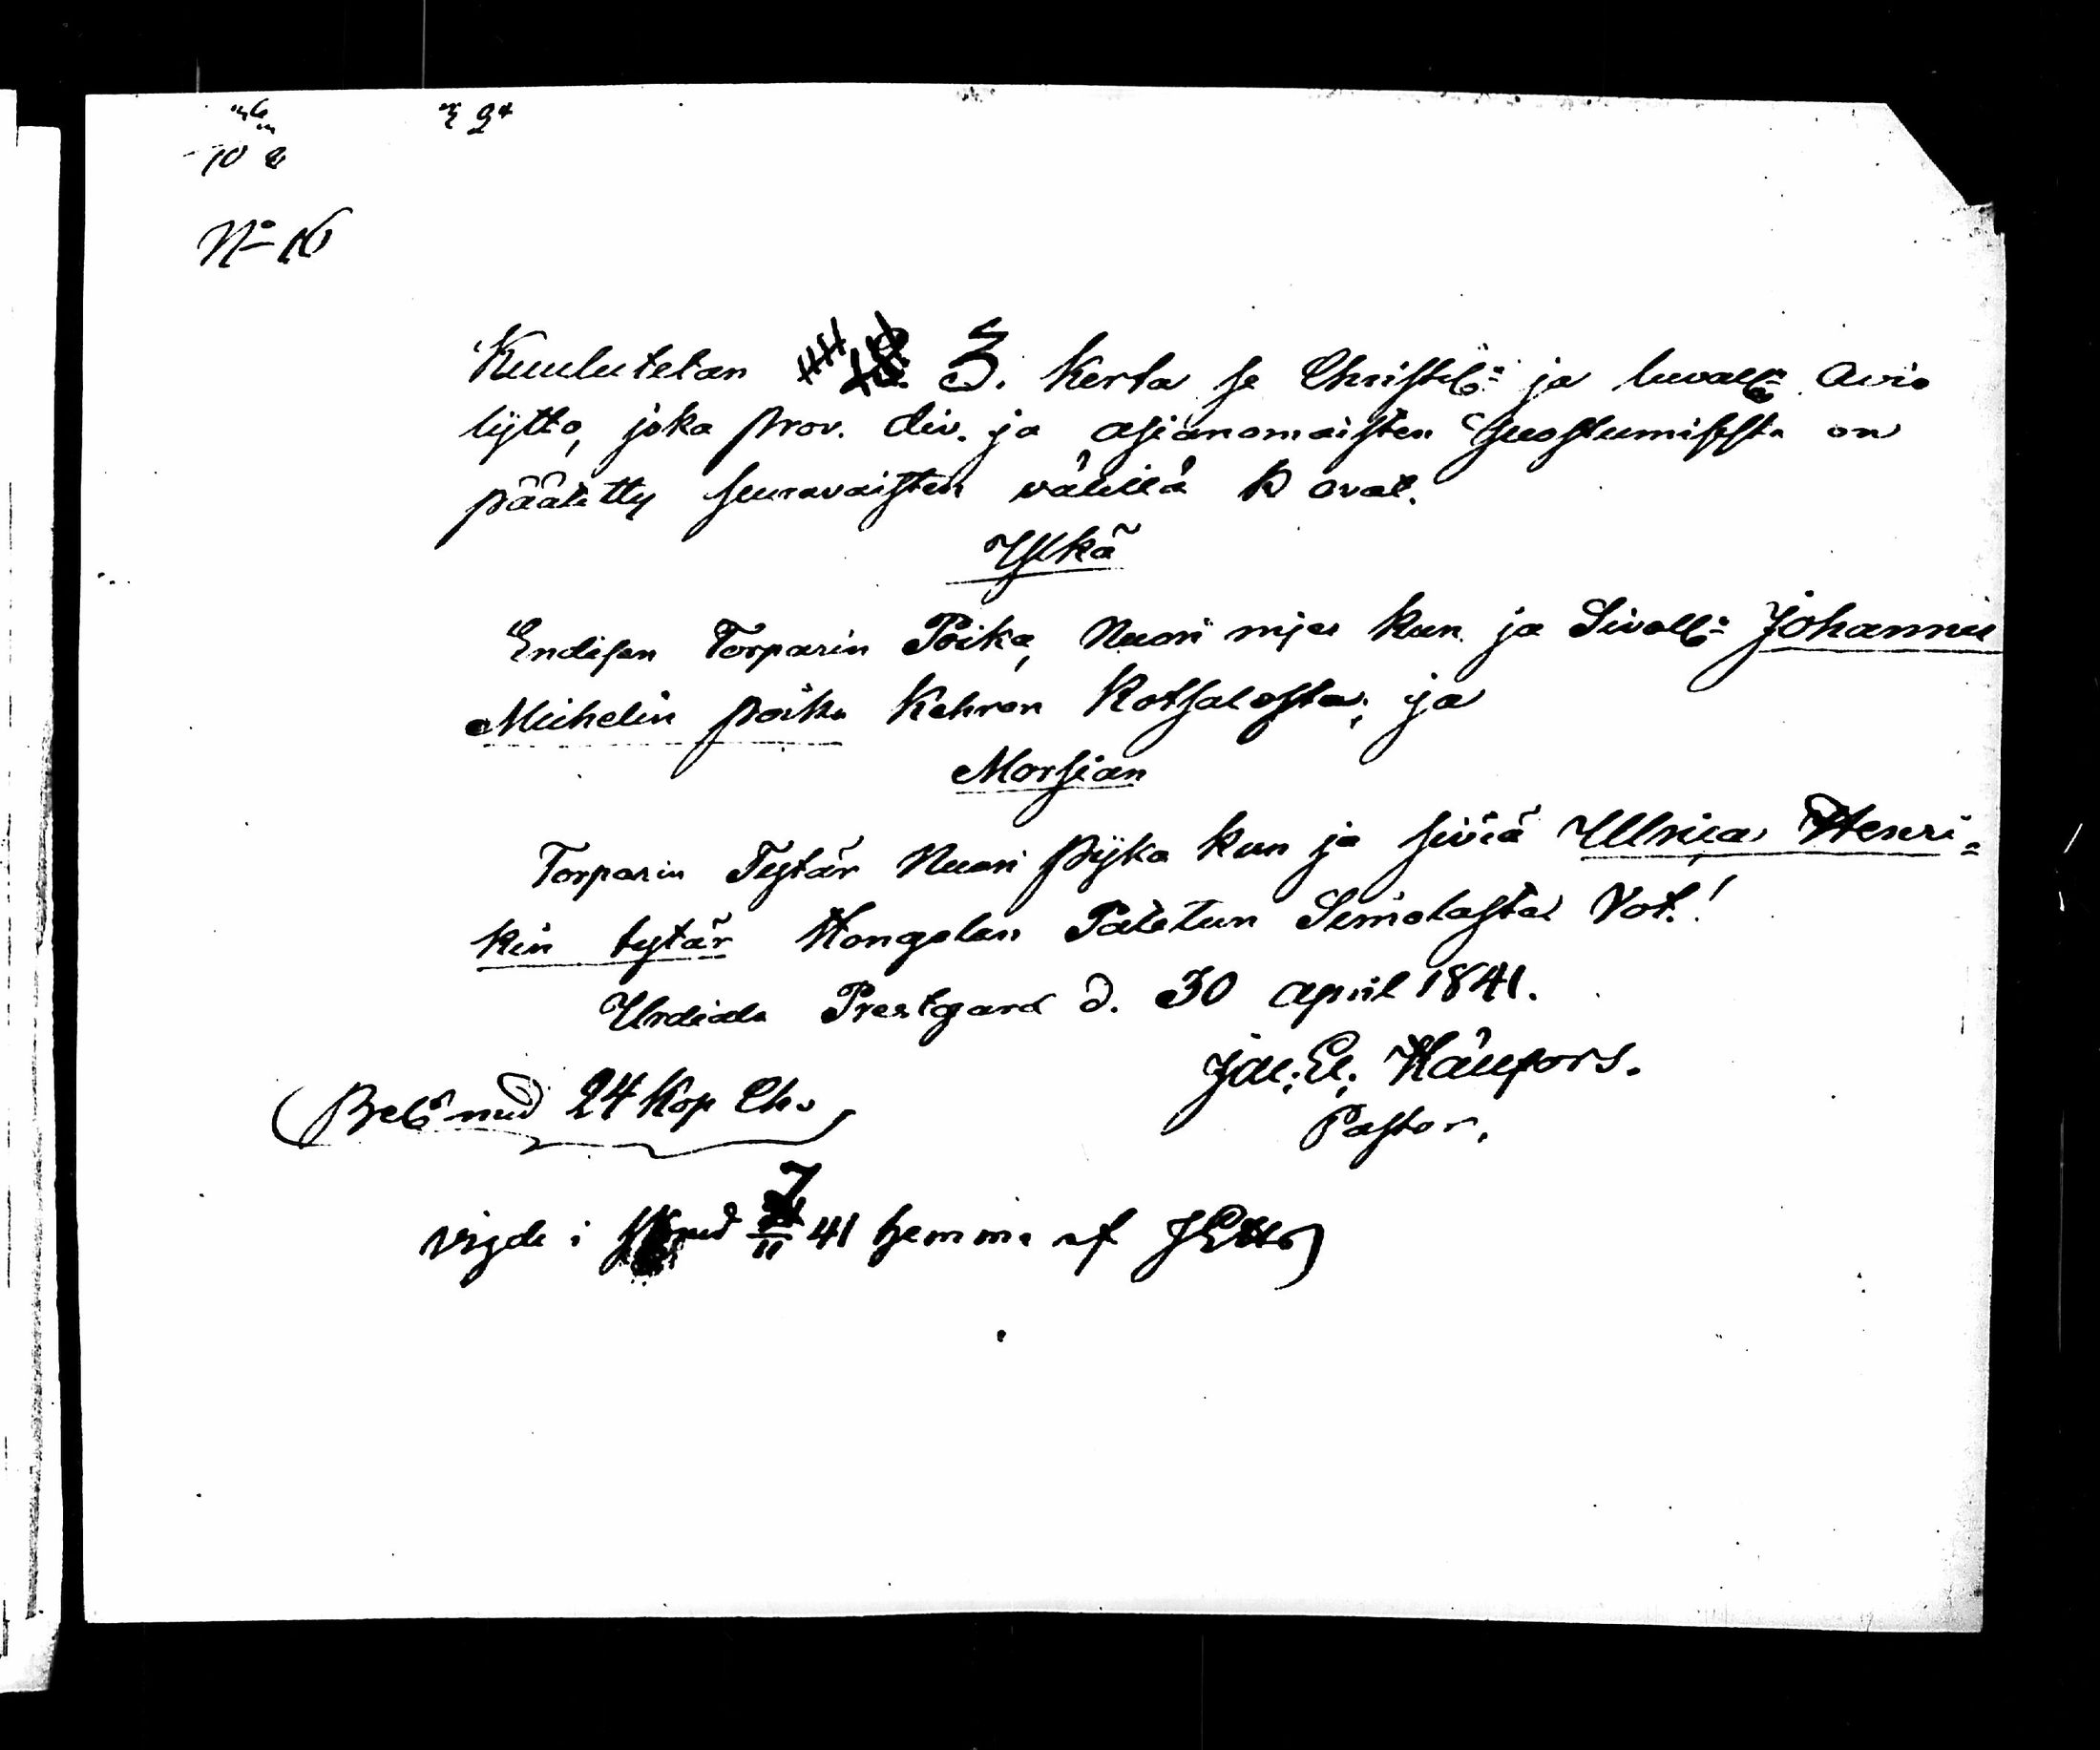 10 2
No 16
Kuulutetan 3. kerta se Christel: ja luvall: Avio
lijtto, joka prov. div. ja asianomaisten suostumissta on
päätetty seuravaisten välillä k ovat.
Ylkä
Endisen Torparin Poika, Nuori mjes kun. ja Sivell: Johannes
Michelin poika Kehron Kotsalosta; ja
Morsian
Torparin Tytär Nuori pijka kun ja siviä Ulrica Henri=
kin tytär Hongolan Simolasta Vot.!
Urdiala Prestgård d. 30 april 1841.
Jac: El:
Pastor.
med 24 Kop
Vigde i 7/11 41 hemma af